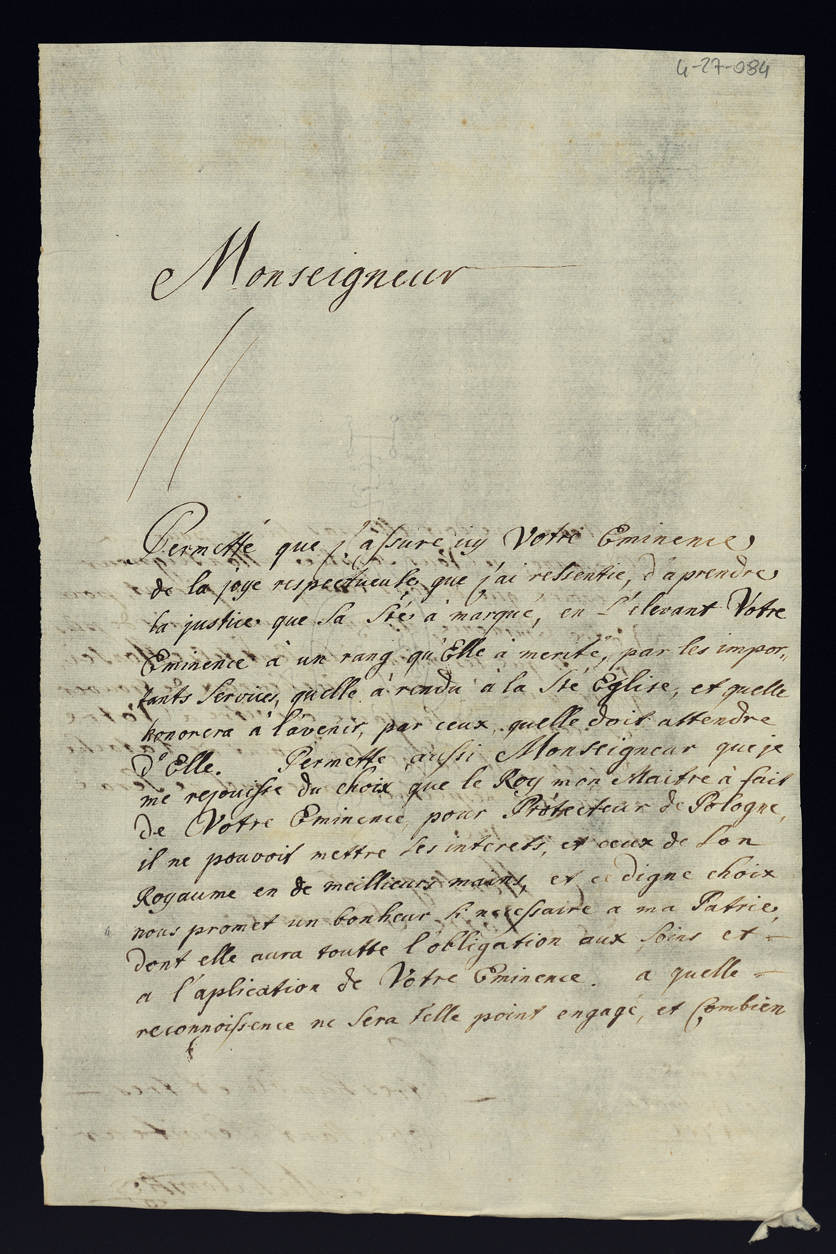 4-27-084
Monseigneur
Permetté que j'assure icy Votre Eminence,
de la joye respectueuse, que j'ai ressentie, d'aprendre
la justice que Sa Sté à marqué, en L'elevant Votre
Eminence à un rang qu'Elle à merité, par les impor-
tants Services, quelle à rendu à la Ste Eglise, et quelle
honorera à l'avenir, par ceux quelle doit attendre
d'Elle. Permetté aussi Monseigneur que je
me rejouisse du choix que le Roy mon Maitre à fait
de Votre Eminence, pour Protecteur de Pologne,
il ne pouvoit mettre Ses interets, et ceux de Son
Royaume en de meillieurs mains, et ce digne choix
nous promet un bonheur si necessaire a ma Patrie,
dont elle aura toutte l'obligation aux soins et
a l'aplication de Votre Eminence. a quelle
reconnoissence ne sera t'elle point engagé, et Combien